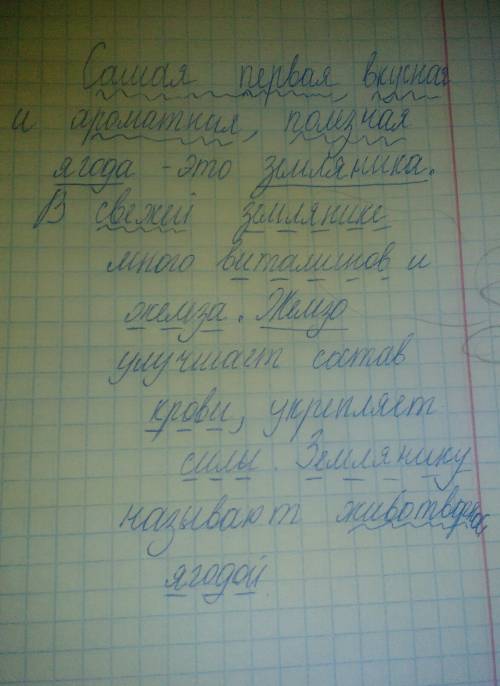 Самая первая вкусная
и ароматная, полезная
ягода - это земляника.
В свежей землянике
много витаминов и
железа. Железо
улучшает состав
крови, укрепляет
силы. Землянику
называют
ягодой